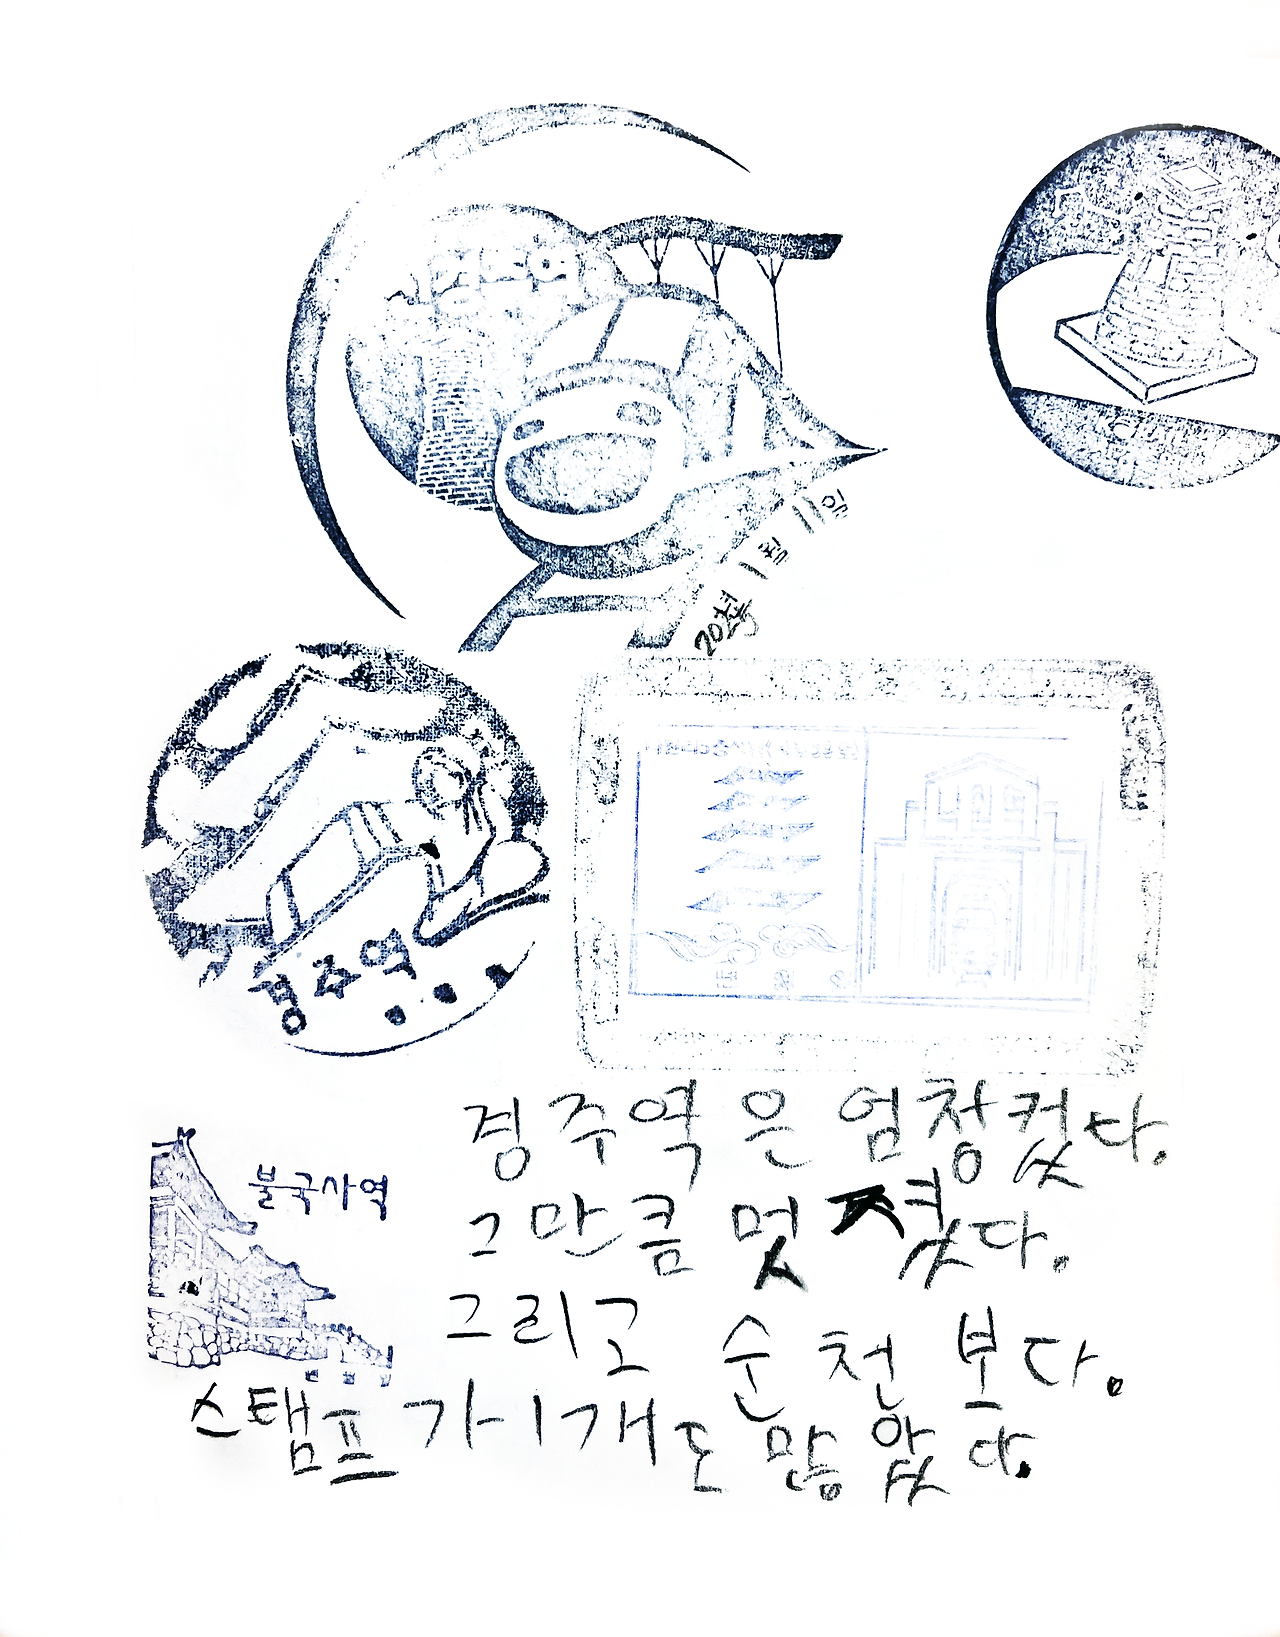 신경주역
1월 11일
경주역
불국사역
경주역은 엄청컸다.
그만큼 멋졌다.
그리고 순천 보다.
스탬프가 1개도 많았다.